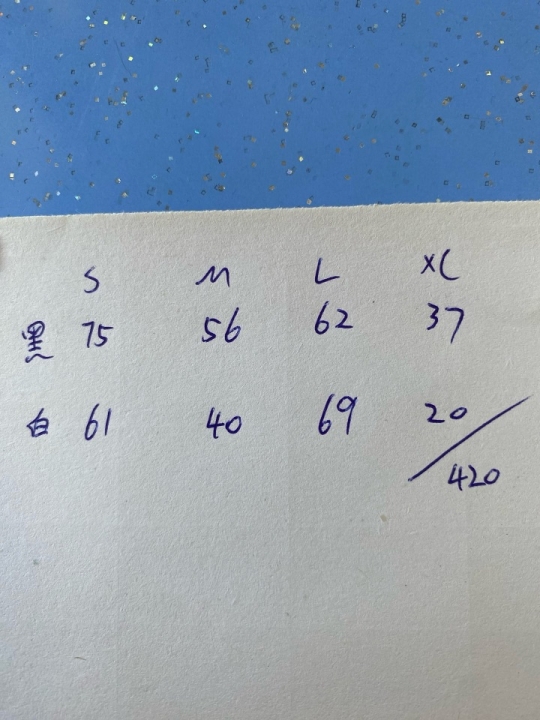 S M L XL
黑 75 56 62 37
白 61 40 69 20
420